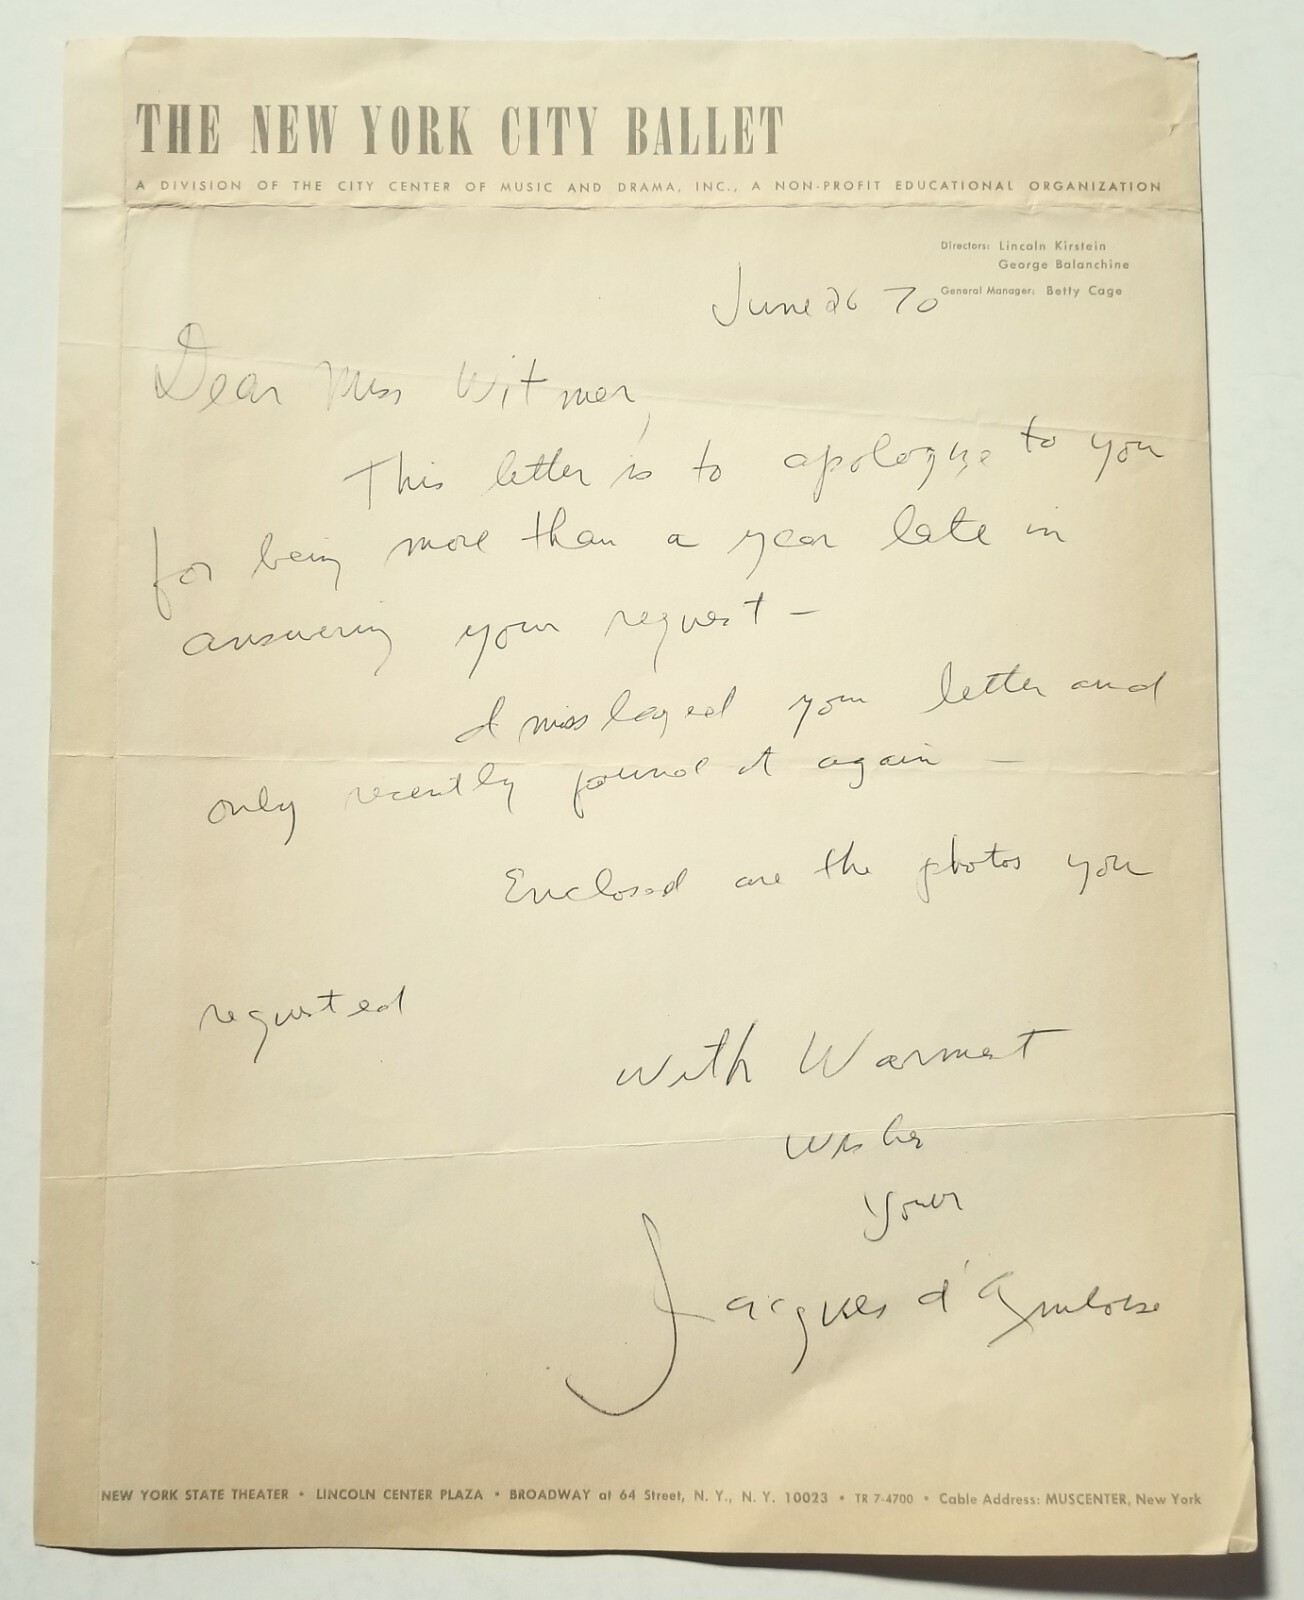 THE NEW YORK CITY BALLET
A DIVISION OF THE CITY CENTER OF MUSIC AND DRAMA, INC., A NON-PROFIT EDUCATIONAL ORGANIZATION
Directors: Lincoln Kirstein
George Balanchine
General Manager: Betty Cage
June 26 70
Dear Miss Witmer,
This letter is to apologize to you
for being more than a year late in
answering your request —
I misslayed your letter and
only recently found it again —
Enclosed are the photos you
requested
With Warmest
Wishes
Yours
Jacques d'Amboise
NEW YORK STATE THEATER • LINCOLN CENTER PLAZA • BROADWAY at 64 Street, N. Y., N. Y. 10023 • TR 7-4700 • Cable Address: MUSCENTER, New York